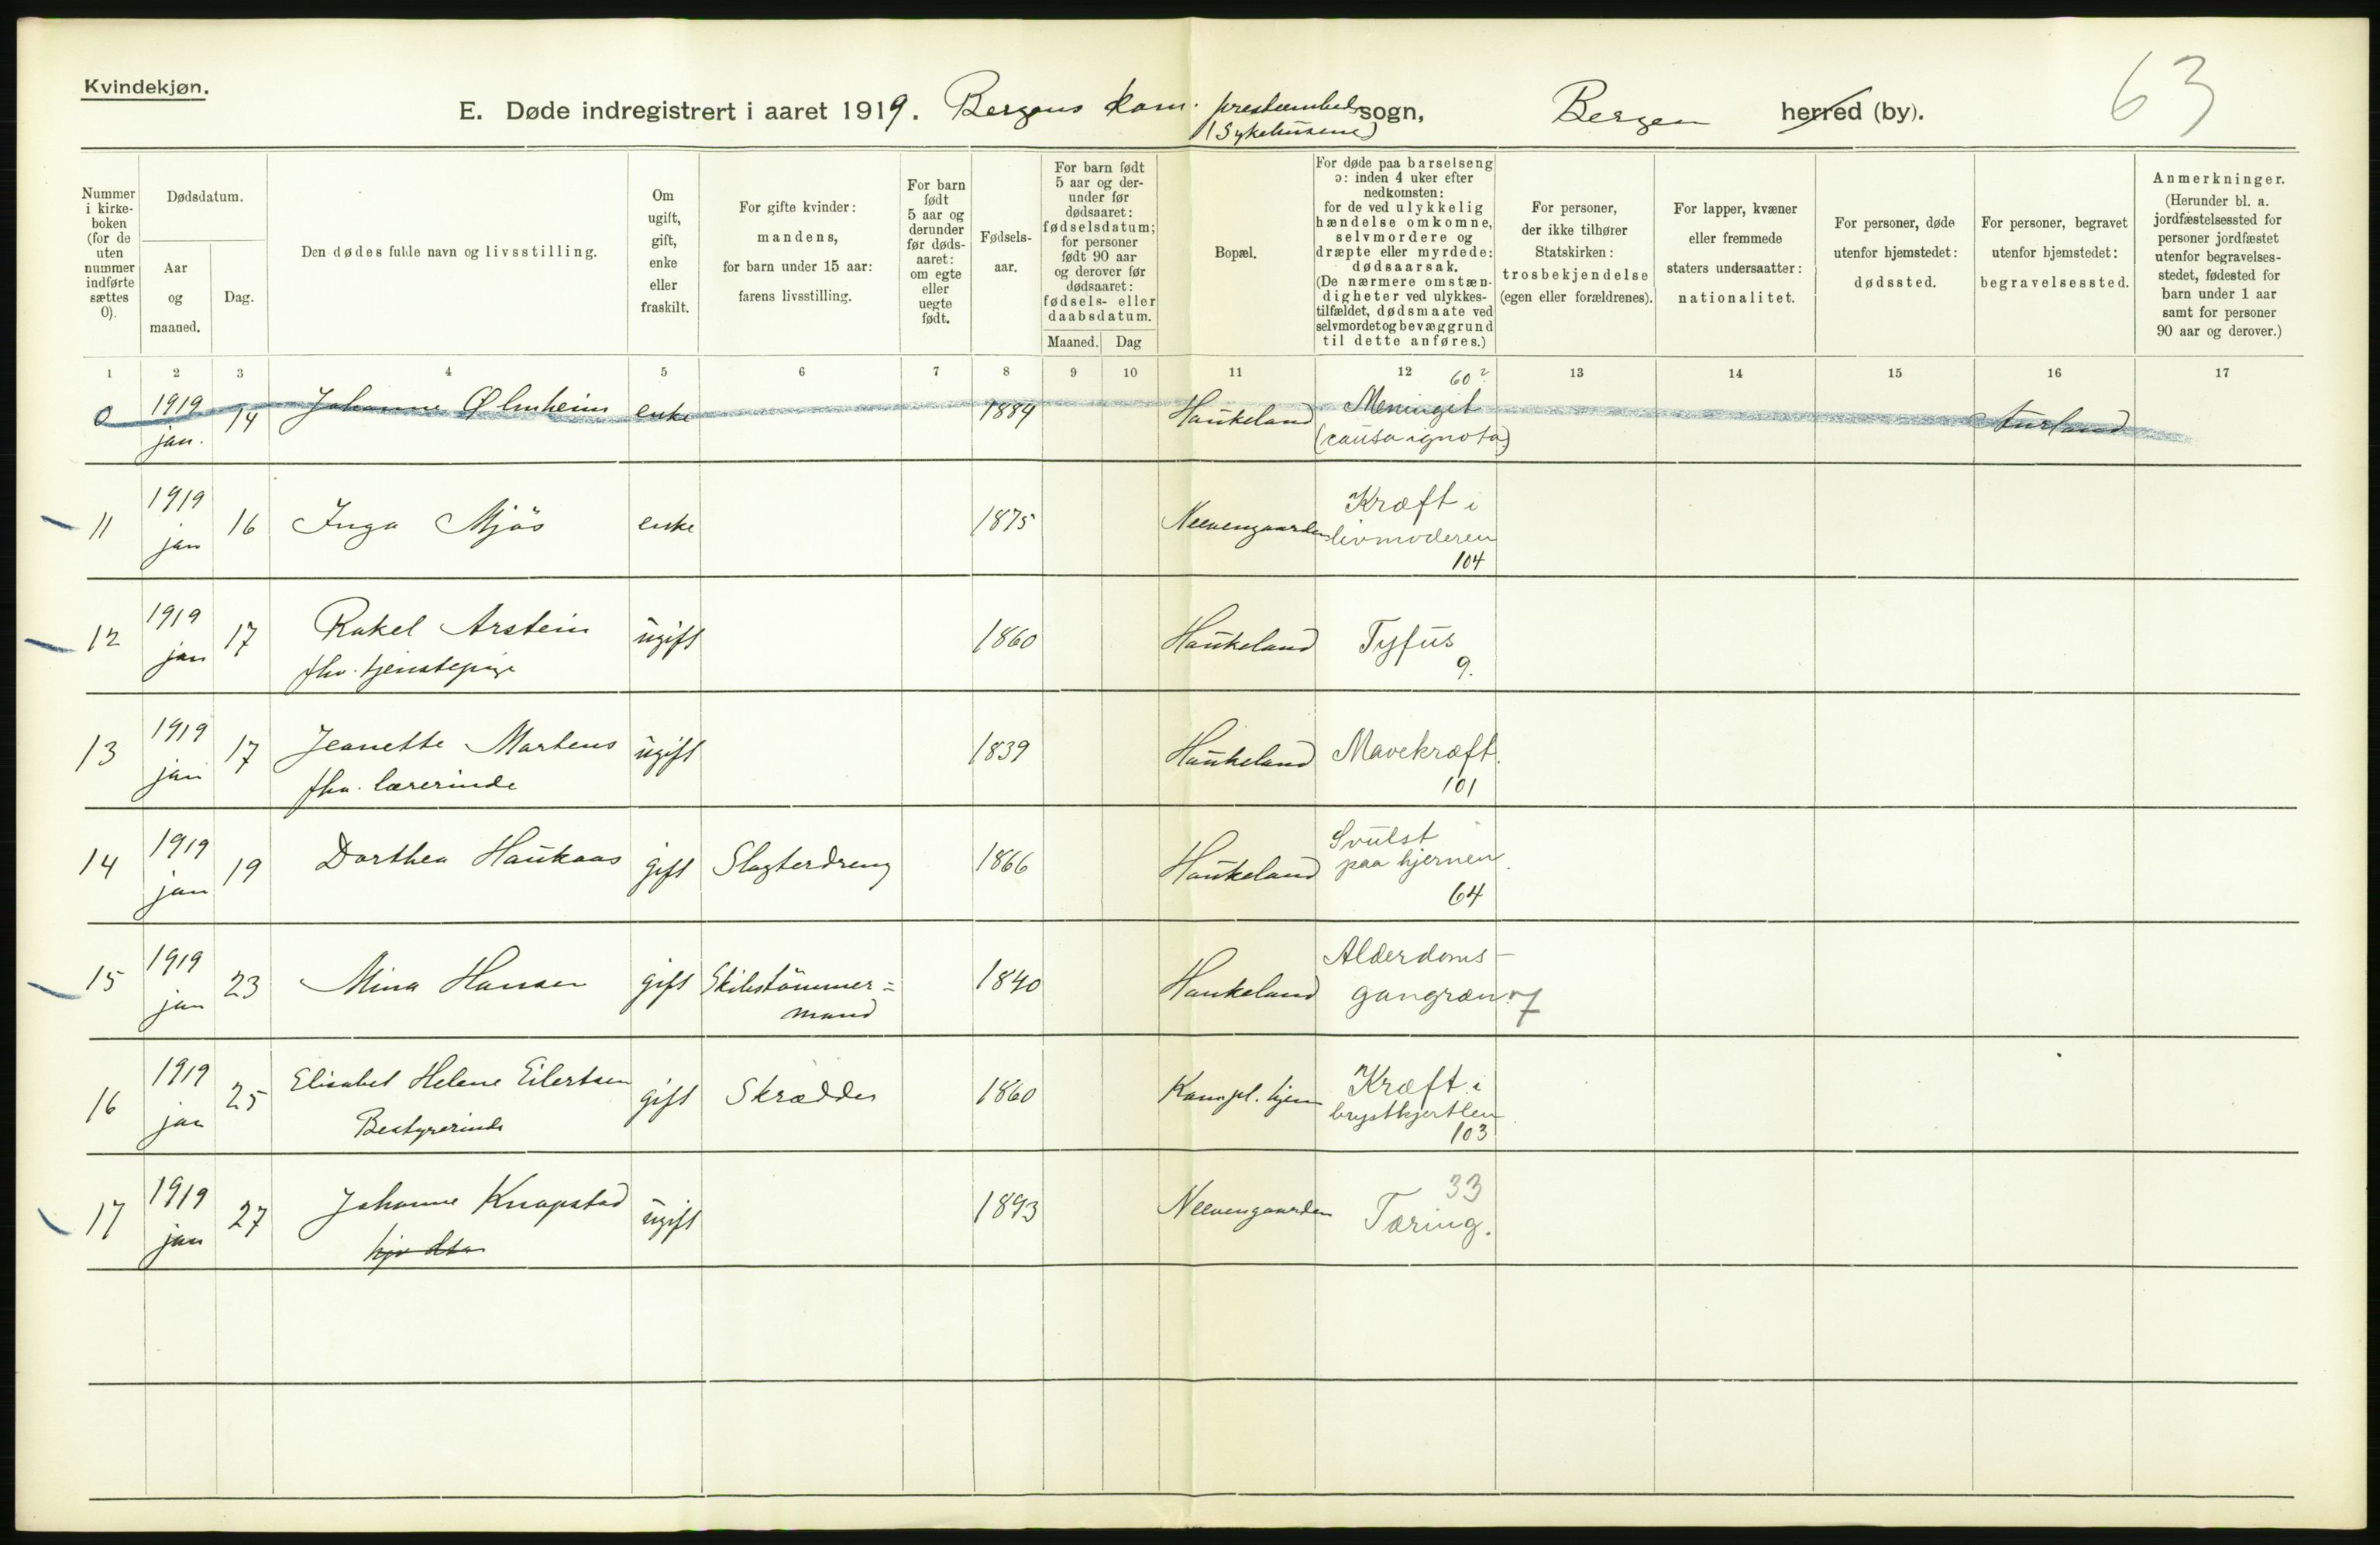 Kvindekjøn.
63
E. Døde indregistrert i aaret 1919. Bergens kom. presteembeds sogn, Bergen herred (by).
(Sykehusene)
Nummer i kirke-boken (for de uten nummer indførte sættes 0).
Dødsdatum.
Aar og maaned.
Dag.
Den dødes fulde navn og livsstilling.
Om ugift, gift, enke eller fraskilt.
For gifte kvinder: mandens, for barn under 15 aar: farens livsstilling.
For barn født 5 aar og derunder før døds-aaret: om egte eller uegte født.
Fødsels-aar.
For barn født 5 aar og der-under før dødsaaret: fødselsdatum; for personer født 90 aar og derover før dødsaaret: fødsels- eller daabsdatum.
Maaned. Dag
Bopæl.
For døde paa barselseng ɔ: inden 4 uker efter nedkomsten: for de ved ulykkelig hændelse omkomne, selvmordere og dræpte eller myrdede: dødsaarsak. (De nærmere omstæn-digheter ved ulykkes-tilfældet, dødsmaate ved selvmordet og bevæggrund til dette anføres.)
For personer, der ikke tilhører Statskirken: trosbekjendelse (egen eller forældrenes).
For lapper, kvæner eller fremmede staters undersaatter: nationalitet.
For personer, døde utenfor hjemstedet: dødssted.
For personer, begravet utenfor hjemstedet: begravelsessted.
Anmerkninger. (Herunder bl. a. jordfæstelsessted for personer jordfæstet utenfor begravelses-stedet, fødested for barn under 1 aar samt for personer 90 aar og derover.)
1 2 3 4 5 6 7 8 9 10 11 12 13 14 15 16 17
0 1919 jan. 14 Johanne Ølmheim enke 1884 Haukeland Meningit 60?
(causa ignota) Aurland
11 1919 jan 16 Inga Mjös enke 1875 Neevengaarden Kræft i
livmoderen
104
12 1919 jan 17 Rakel Arstein ugift 1860 Haukeland Tyfus
fhv. tjenstepige 9.
13 1919 jan 17 Jeanette Martens ugift 1839 Haukeland Mavekræft.
fhv. lærerinde 101
14 1919 jan 19 Dorthea Haukaas gift Slagterdreng 1866 Haukeland Svulst
paa hjernen.
64
15 1919 jan 23 Mina Hansen gift Skibstömmer=
mand 1840 Haukeland Alderdoms-
gangræn. 7
16 1919 jan 25 Elisabet Helene Eilertsen gift Skrædder 1860 Kompl. hjem Kræft i
Bestyrerinde brystkjertlen
103
17 1919 jan 27 Johanne Knapstad ugift 1893 Neevengaarden 33
Tæring.